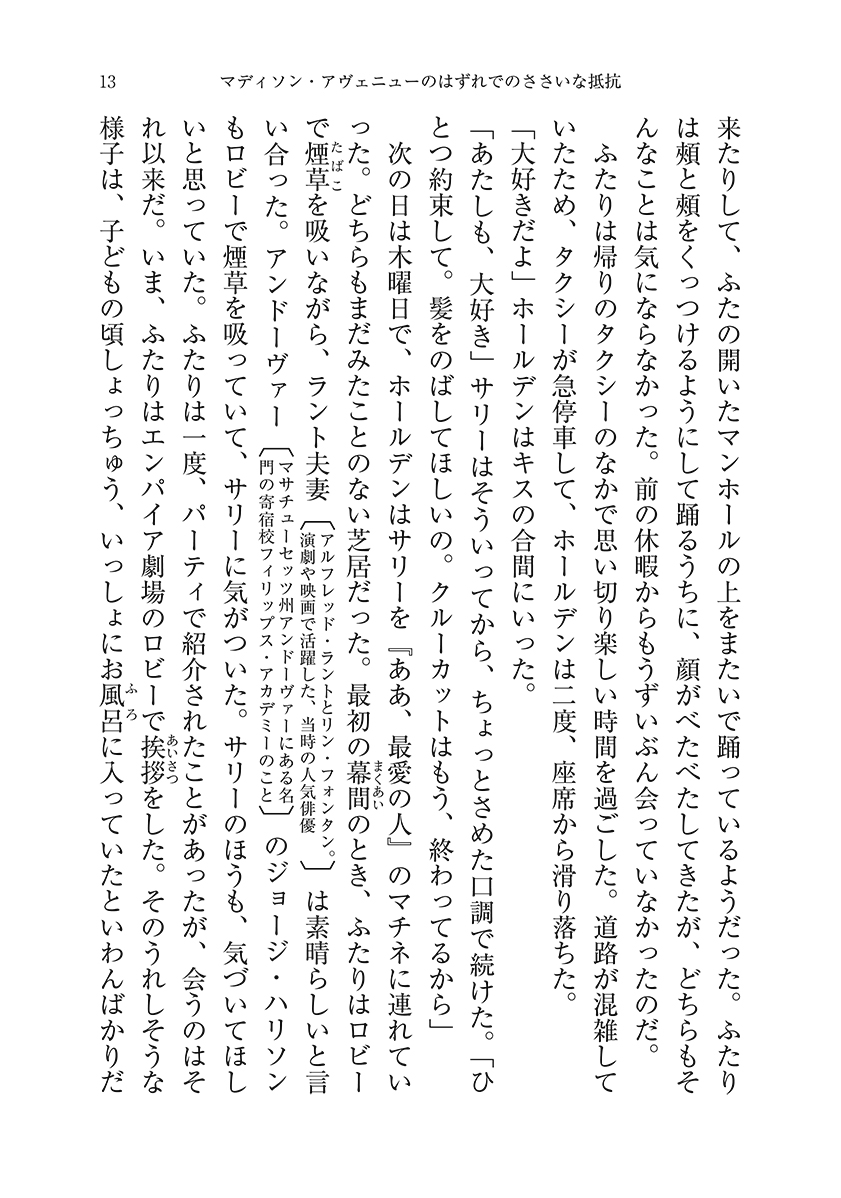 13
マディソン・アヴェニューのはずれでのささいな抵抗
来たりして、ふたの開いたマンホールの上をまたいで踊っているようだった。ふたり
は頰と頰をくっつけるようにして踊るうちに、顔がべたべたしてきたが、どちらもそ
んなことは気にならなかった。前の休暇からもうずいぶん会っていなかったのだ。
ふたりは帰りのタクシーのなかで思い切り楽しい時間を過ごした。道路が混雑して
いたため、タクシーが急停車して、ホールデンは二度、座席から滑り落ちた。
「大好きだよ」ホールデンはキスの合間にいった。
「あたしも、大好き」サリーはそういってから、ちょっとさめた口調で続けた。「ひ
とつ約束して。髪をのばしてほしいの。クルーカットはもう、終わってるから」
次の日は木曜日で、ホールデンはサリーを『ああ、最愛の人』のマチネに連れてい
った。どちらもまだみたことのない芝居だった。最初の幕間のとき、ふたりはロビー
まくあい
で煙草を吸いながら、ラント夫妻〔アルフレッド・ラントとリン・フォンタン。演劇や映画で活躍した、当時の人気俳優〕は素晴らしいと言
たばこ
い合った。アンドーヴァー〔マサチューセッツ州アンドーヴァーにある名門の寄宿校フィリップス・アカデミーのこと〕のジョージ・ハリソン
もロビーで煙草を吸っていて、サリーに気がついた。サリーのほうも、気づいてほし
いと思っていた。ふたりは一度、パーティで紹介されたことがあったが、会うのはそ
れ以来だ。いま、ふたりはエンパイア劇場のロビーで挨拶をした。そのうれしそうな
あいさつ
様子は、子どもの頃しょっちゅう、いっしょにお風呂に入っていたといわんばかりだ
ふろ